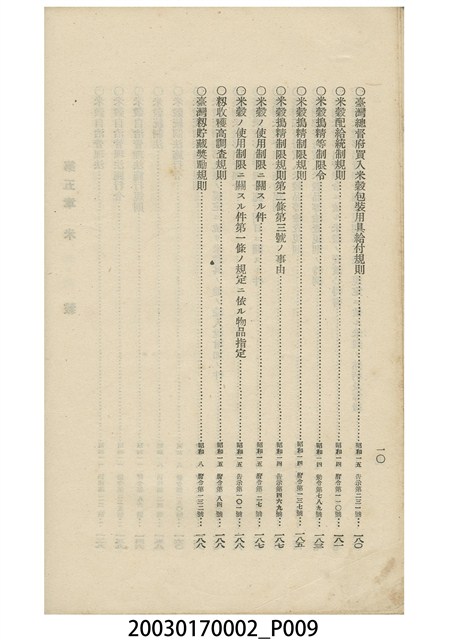 〇臺灣總督府買入米穀包裝用具給付規則……昭和一五 告示第二三一號…一八〇
〇米穀配給統制規則……昭和一四 府令第一一〇號…一八一
〇米穀搗精等制限令……昭和一四 勅令第七八九號…一八三
〇米穀搗精制限規則……昭和一四 府令第一三七號…一八五
〇米穀搗精制限規則第二條第三號ノ事由……昭和一四 告示第四六九號…一八七
〇米穀ノ使用制限ニ關スル件……昭和一五 府令第二七號…一八七
〇米穀ノ使用制限ニ關スル件第一條ノ規定ニ依ル物品指定……昭和一五 告示第一〇一號…一八八
〇籾收穫高調査規則……昭和一五 府令第八四號…一八八
〇臺灣籾貯藏獎勵規則……昭和八 府令第一三二號…一八八
一〇
20030170002_P009